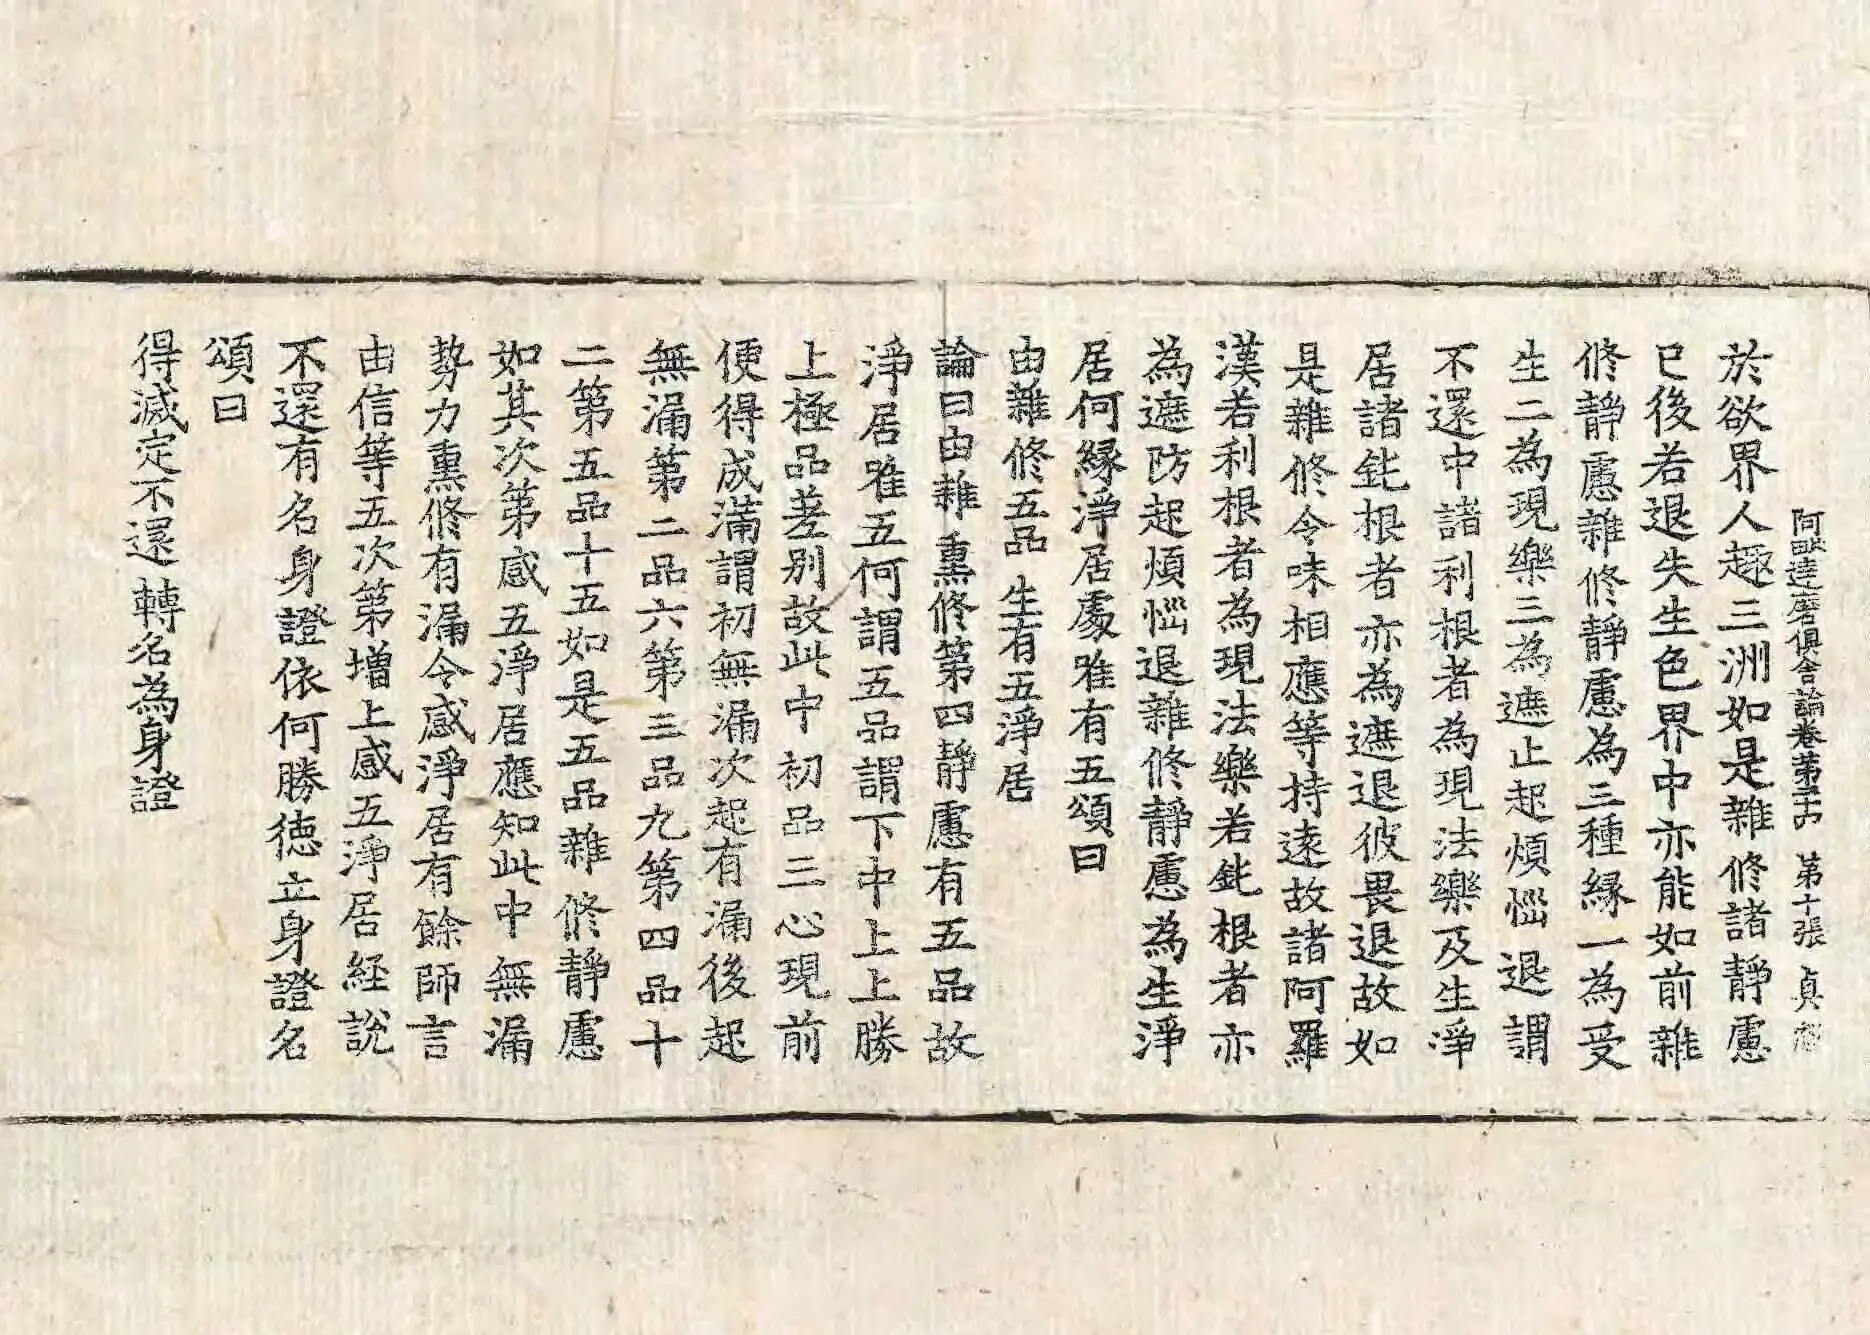 阿毗達磨俱舍論卷第二十四 第十張 貞
於欲界人趣三洲如是雜修諸靜慮
已後若退失生色界中亦能如前雜
修靜慮雜修靜慮為三種緣一為受
生二為現樂三為遮止起煩惱退謂
不還中諸利根者為現法樂及生淨
居諸鈍根者亦為遮退彼畏退故如
是雜修令味相應等持遠故諸阿羅
漢若利根者為現法樂若鈍根者亦
為遮防起煩惱退雜修靜慮為生淨
居何緣淨居處唯有五頌曰
由雜修五品 生有五淨居
論曰由雜熏修第四靜慮有五品故
淨居唯五何謂五品謂下中上上勝
上極品差別故此中初品三心現前
便得成滿謂初無漏次起有漏後起
無漏第二品六第三品九第四品十
二第五品十五如是五品雜修靜慮
如其次第感五淨居應知此中無漏
勢力熏修有漏令感淨居有餘師言
由信等五次第增上感五淨居經說
不還有名身證依何勝德立身證名
頌曰
得滅定不還 轉名為身證